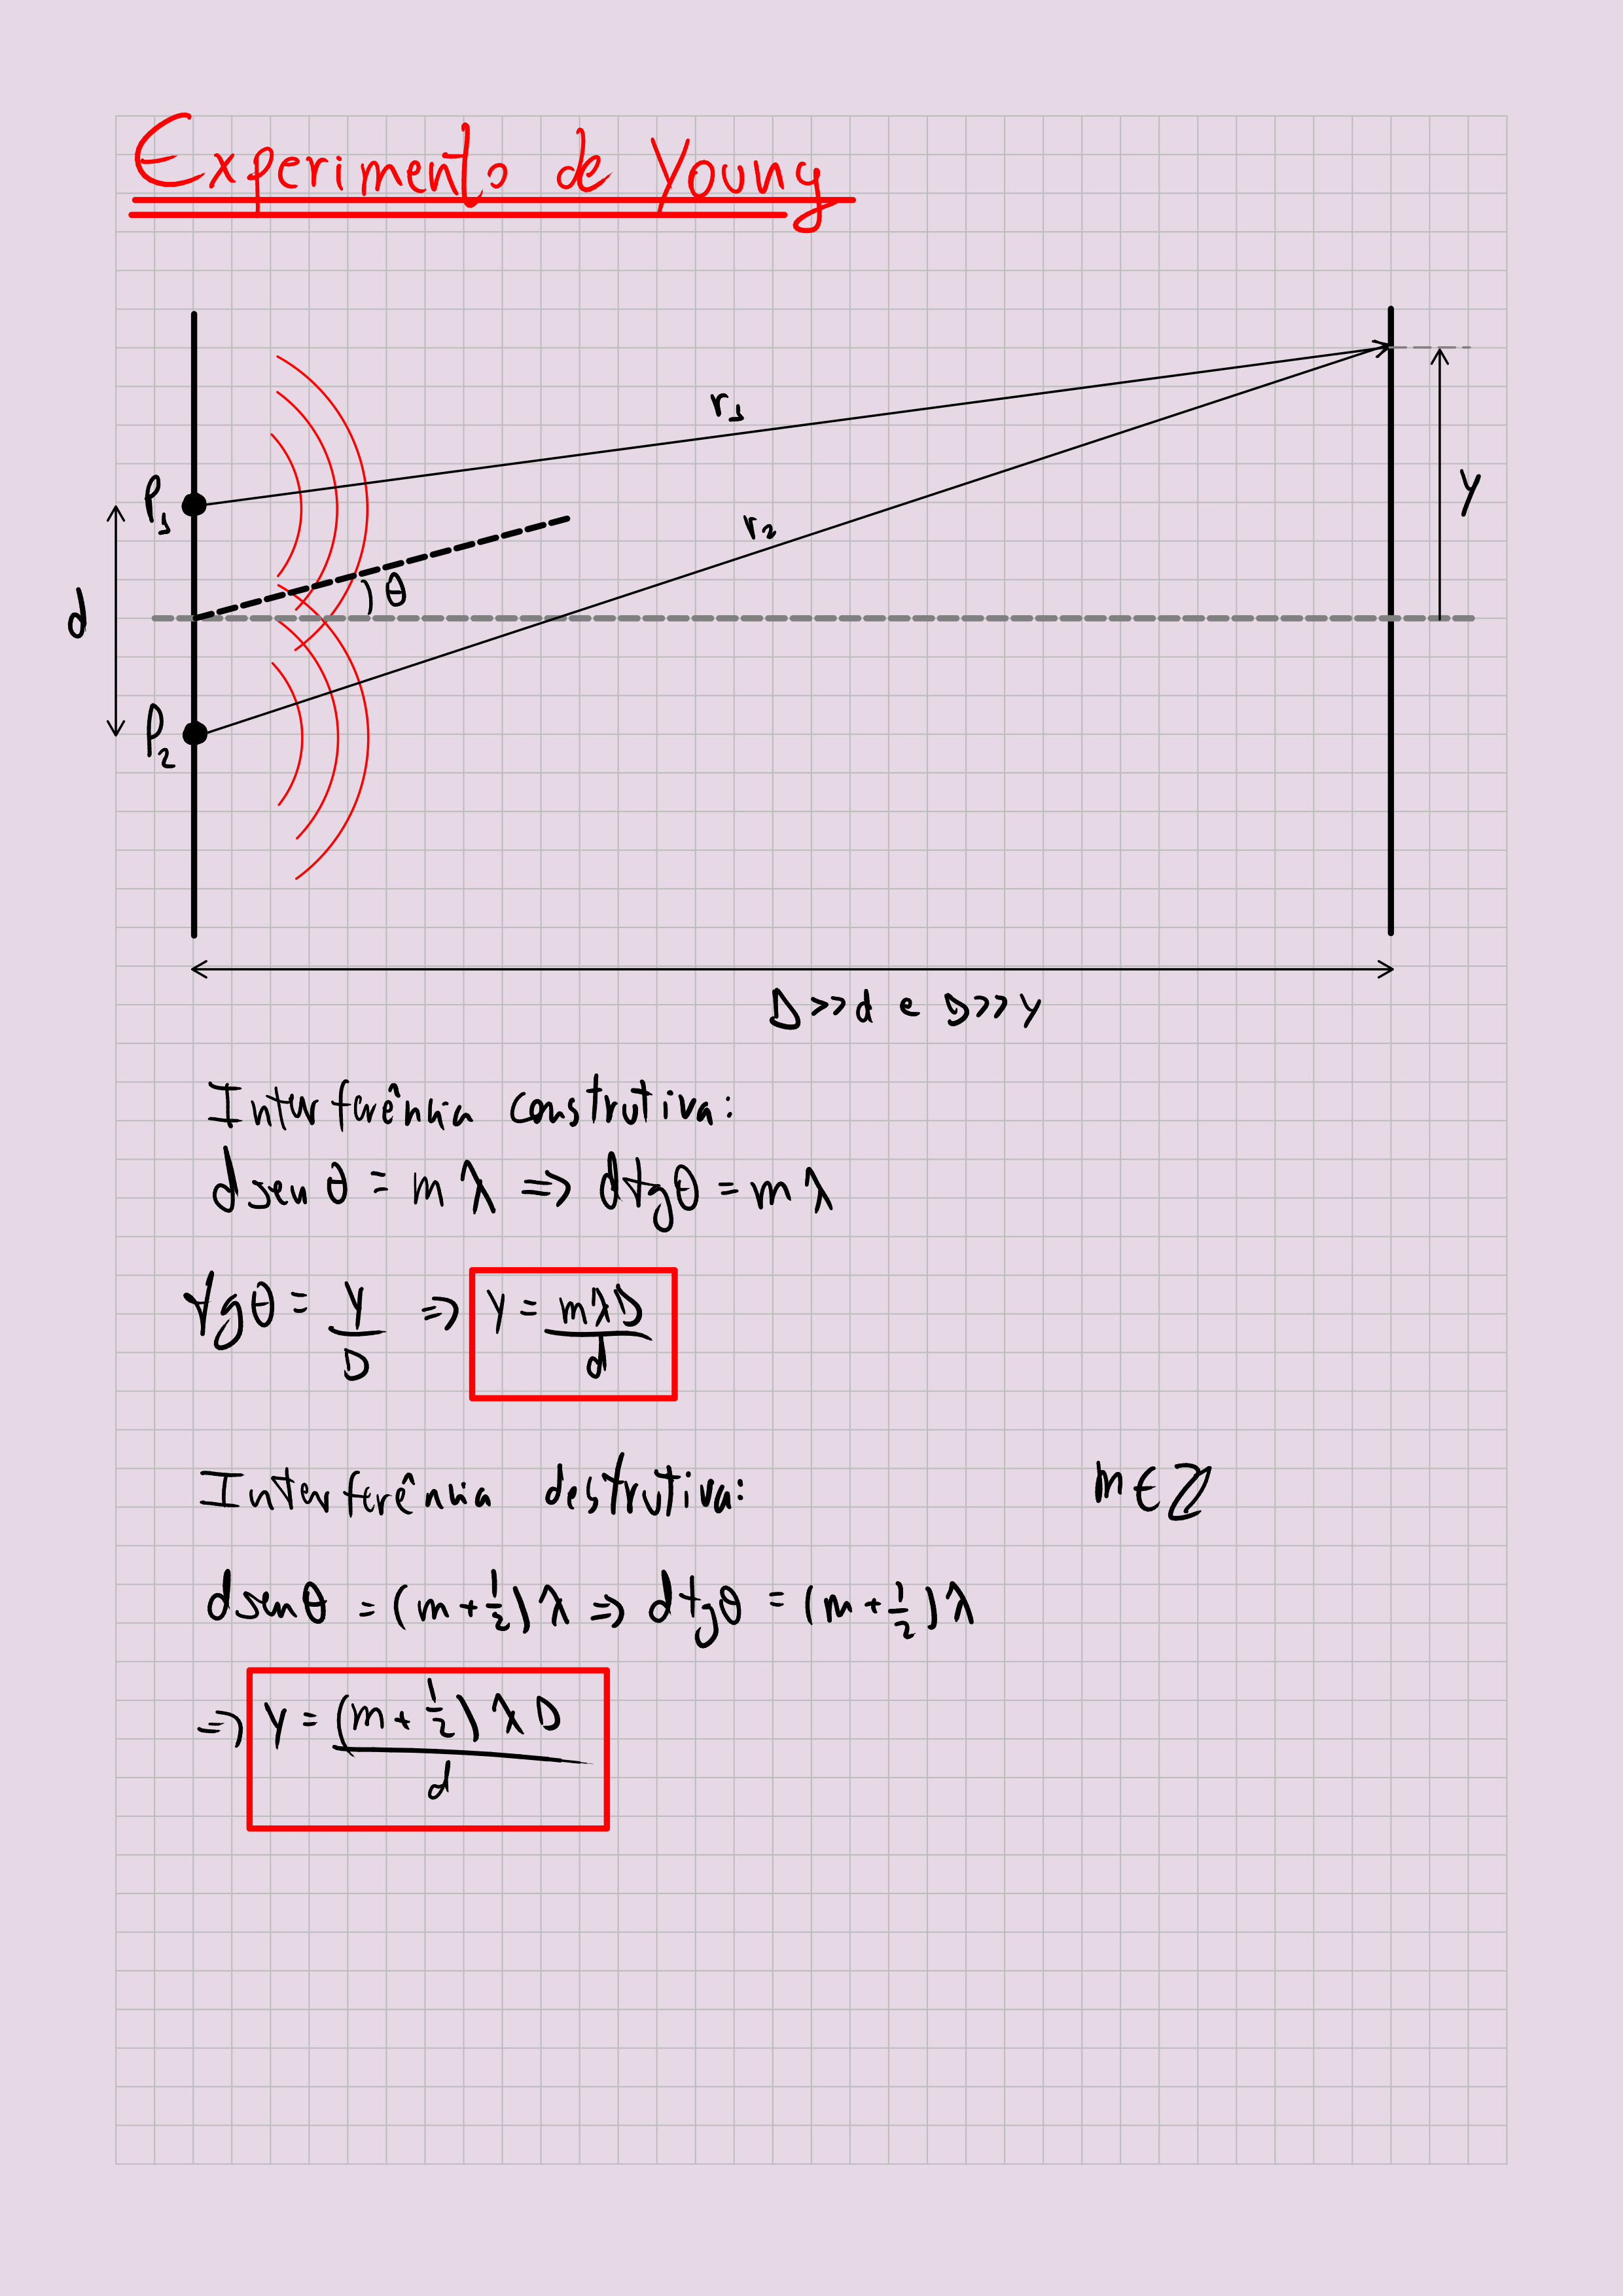 Experimento de Young
r₁
P₁
y
r₂
θ
d
P₂
D >> d e D >> y
Interferência construtiva:
d sen θ = m λ => d tg θ = m λ
tg θ = y/D => y = mλD/d
Interferência destrutiva: m ∈ ℤ
d sen θ = (m + 1/2) λ => d tg θ = (m + 1/2) λ
=> y = (m + 1/2) λ D/d